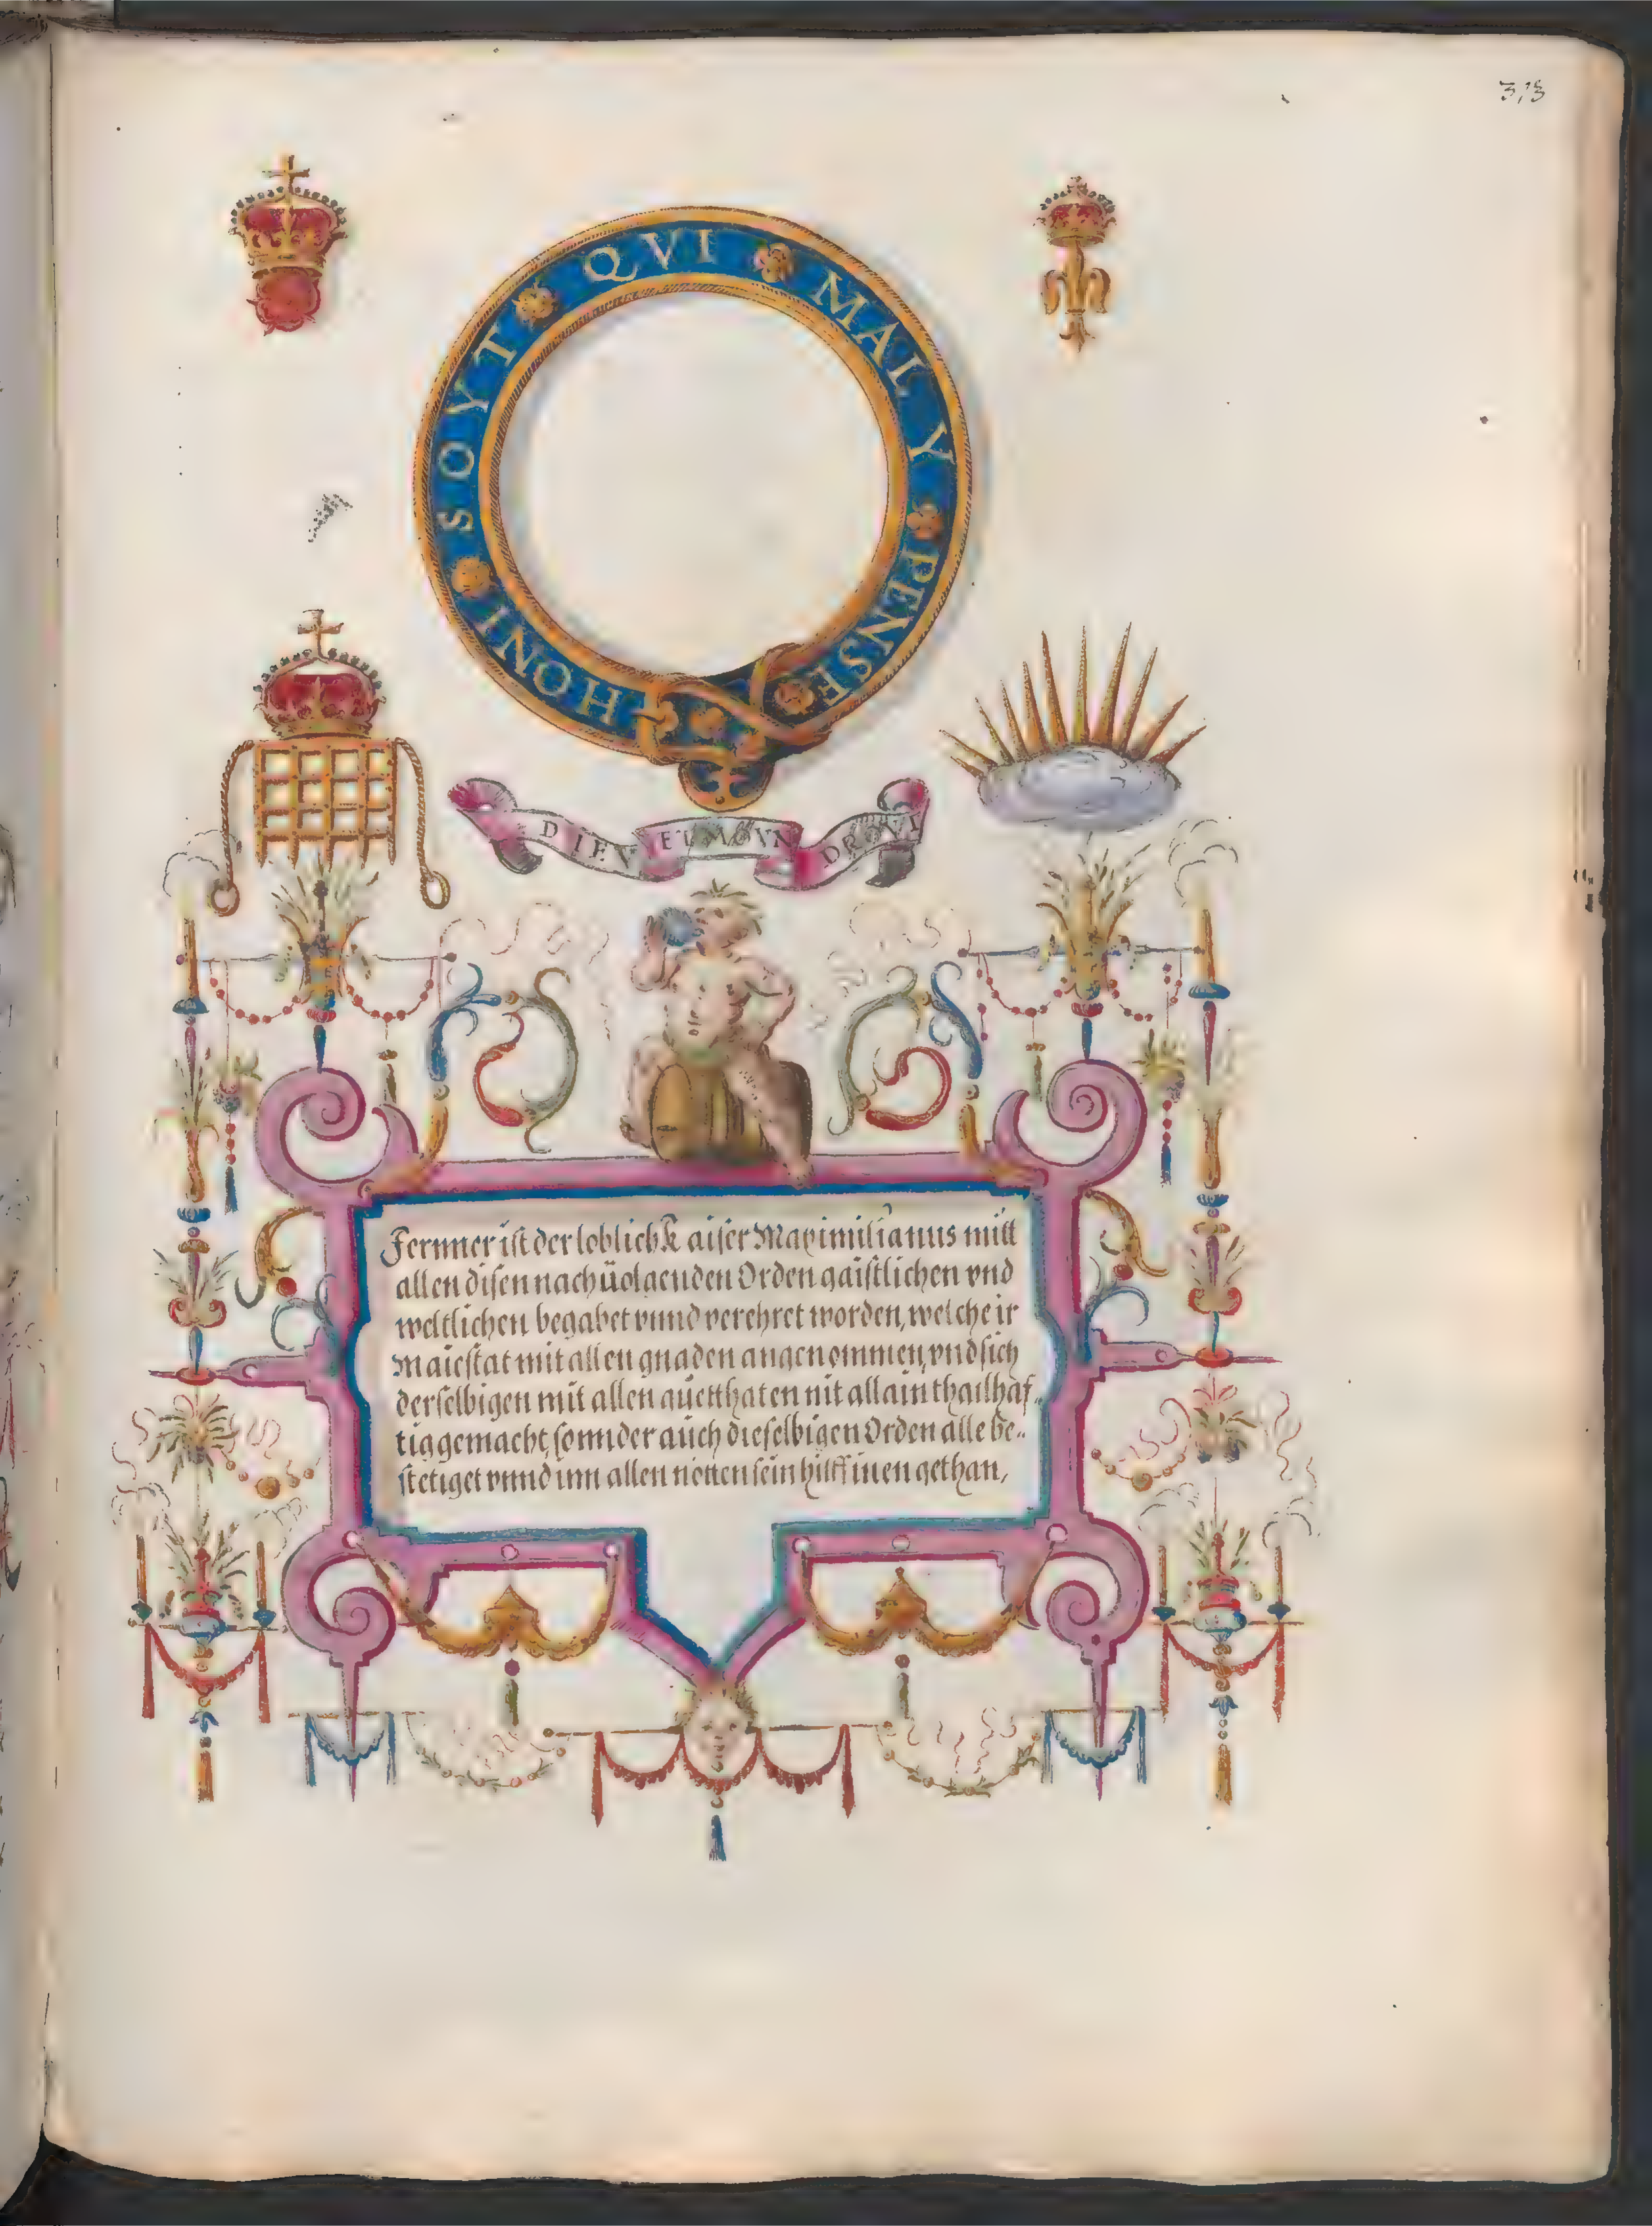 313
HONI SOYT QVI MAL Y PENSE
DIEV ET MOVN DROVI
Fernner ist der loblich Kaiser Maximilianus mitt
allen disen nach üolgenden Orden gaistlichen vnd
weltlichen begabet vnnd verehret worden, welche ir
Maiestat mit allen gnaden angenommen, vnd sich
derselbigen mit allen guetthaten nit allain thailhaf„
tig gemacht, sonnder auch dieselbigen Orden alle be„
stetiget vnnd inn allen nötten sein hilff inen gethan,